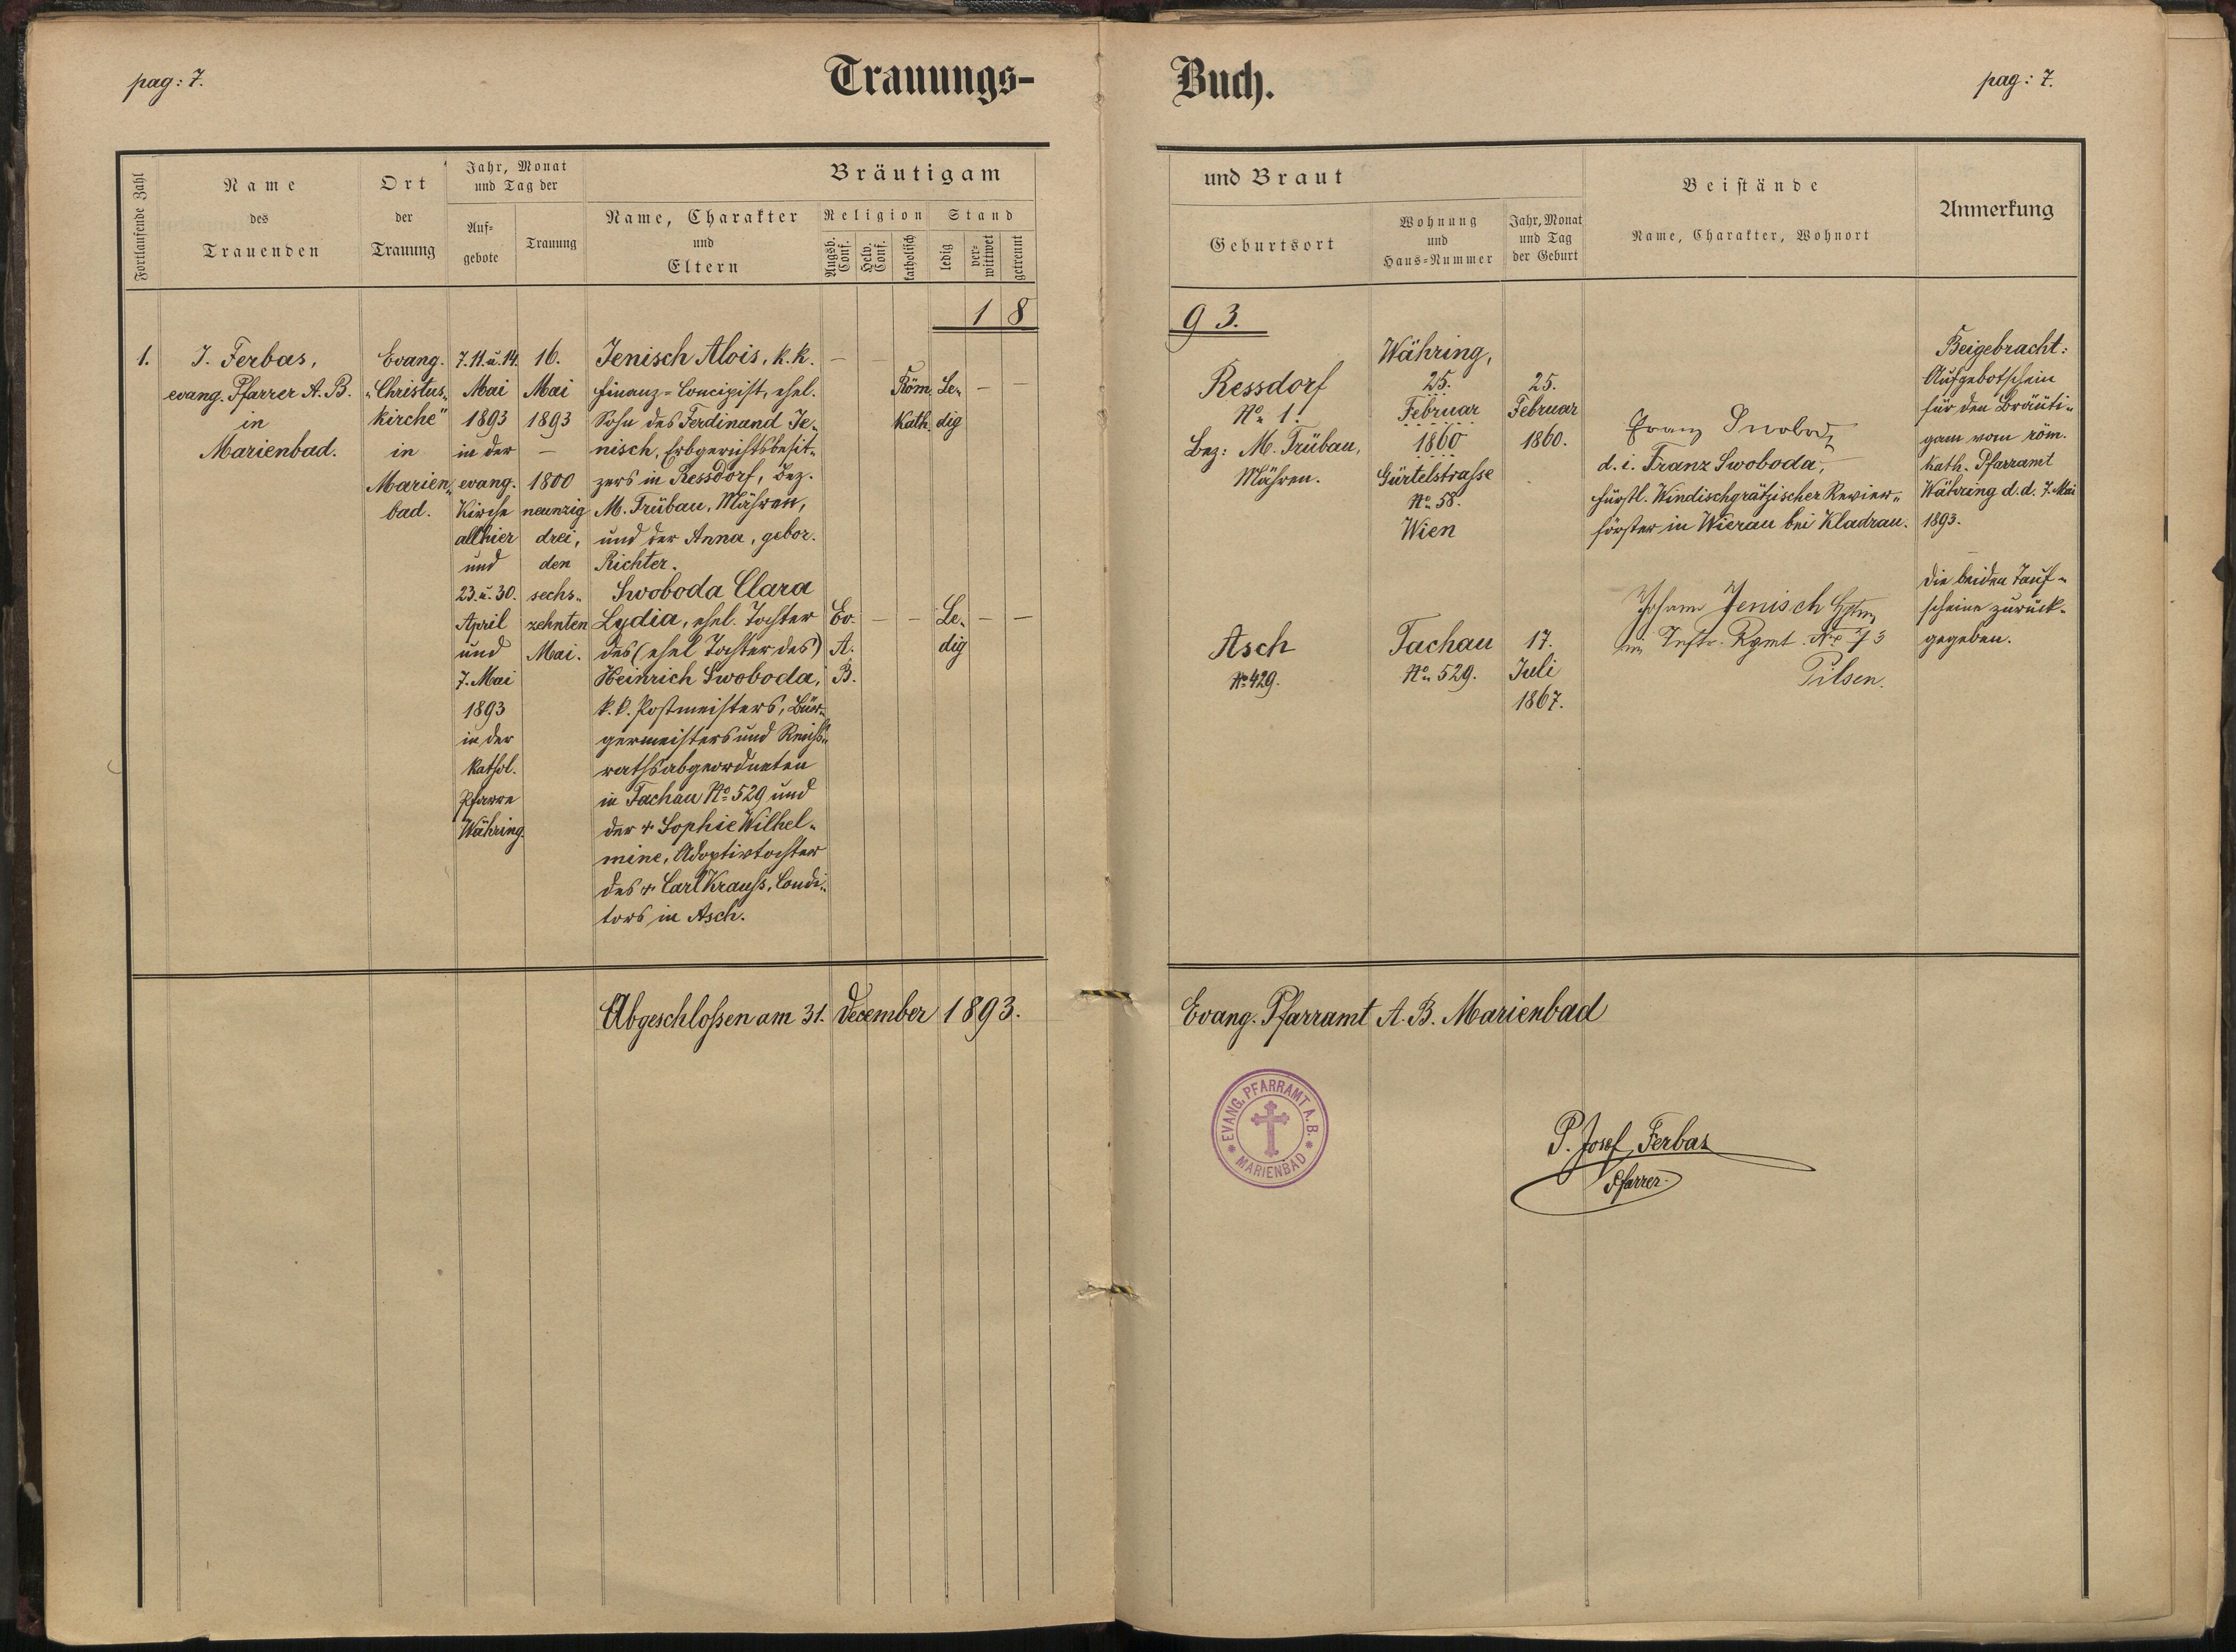 pag: 7.
Trauungs-
Buch.
pag: 7.
Fortlaufende Zahl
Name
des
Trauenden
Ort
der
Trauung
Jahr, Monat
und Tag der
Auf-
gebote
Trauung
Bräutigam
Name, Charakter
und
Eltern
Religion
Augsb. Conf.
Helv. Conf.
katholisch
Stand
ledig
ver-
wittwet
getrennt
und Braut
Geburtsort
Wohnung
und
Haus-Nummer
Jahr, Monat
und Tag
der Geburt
Beistände
Name, Charakter, Wohnort
Anmerkung
18
93.
1.
J. Ferbas,
evang. Pfarrer A. B.
in
Marienbad.
Evang.
„Christus„
kirche"
in
Marien„
bad.
7. 11. u. 14.
Mai
1893
in der
evang.
Kirche
allhier
und
23. u. 30.
April
und
7. Mai
1893
in der
kathol.
Pfarre
Währing.
16.
Mai
1893
—
1800
neunzig
drei,
den
sechs„
zehnten
Mai.
Jenisch Alois, k. k.
Finanz-Concipist, ehel.
Sohn des Ferdinand Je„
nisch, Erbgerichtsbesit„
zers in Ressdorf, Bez.
M. Trübau, Mähren,
und der Anna, gebor.
Richter.
Swoboda Clara
Lydia, ehel. Tochter
des (ehel Tochter des)
Heinrich Swoboda,
k. k. Postmeisters, Bür„
germeisters und Reichs„
rathsabgeordneten
in Tachau No 529 und
der + Sophie Wilhel„
mine, Adoptivtochter
des + Carl Krauss, Condi„
tors in Asch.
— —
Röm.
Kath.
Le„
dig
— —
Ev.
A.
B.
— —
Le„
dig
— —
Ressdorf
No 1.
Bez: M. Trübau,
Mähren.
Asch
No 429.
Währing,
25.
Februar
1860
Gürtelstrasse
No 58.
Wien
Tachau
No 529.
25.
Februar
1860.
17.
Juli
1867.
Franz Swoboda
d. i. Franz Swoboda,
fürstl. Windischgrätzischer Revier„
förster in Wierau bei Kladrau.
Johann Jenisch Hptm
im Inftr. Rgmt. Nro 73
Pilsen.
Beigebracht:
Aufgebotschein
für den Bräuti„
gam vom röm.
kath. Pfarramt
Währing d. d. 7. Mai
1893.
Die beiden Tauf„
scheine zurück„
gegeben.
Abgeschlossen am 31. December 1893.
Evang. Pfarramt A. B. Marienbad
EVANG. PFARRAMT A. B.
* MARIENBAD *
P. Josef Ferbas
Pfarrer.